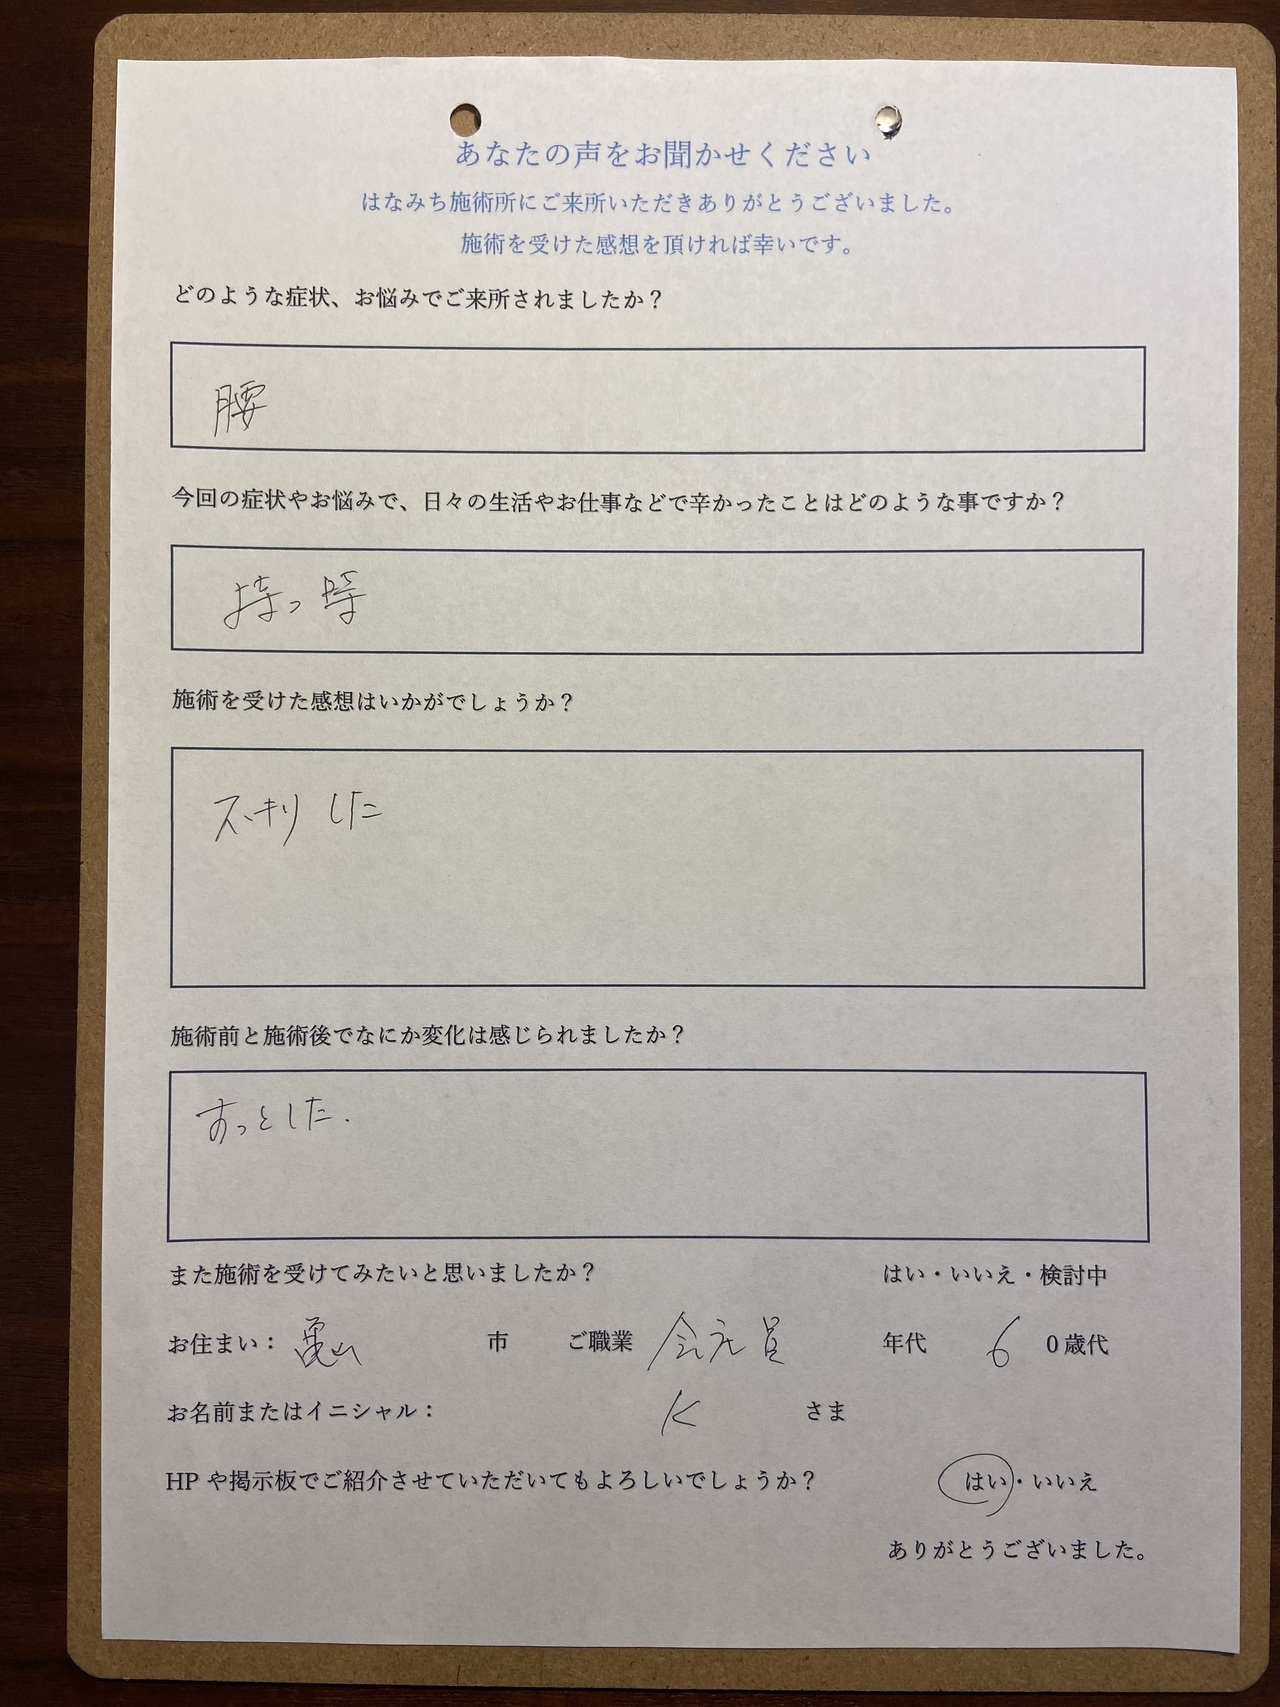 あなたの声をお聞かせください
はなみち施術所にご来所いただきありがとうございました。
施術を受けた感想を頂ければ幸いです。
どのような症状、お悩みでご来所されましたか？
腰
今回の症状やお悩みで、日々の生活やお仕事などで辛かったことはどのような事ですか？
持つ時
施術を受けた感想はいかがでしょうか？
スッキリした
施術前と施術後でなにか変化は感じられましたか？
すっとした.
また施術を受けてみたいと思いましたか？ はい・いいえ・検討中
お住まい： 亀山 市 ご職業 会社員 年代 6 0歳代
お名前またはイニシャル： K さま
HPや掲示板でご紹介させていただいてもよろしいでしょうか？ はい・いいえ
ありがとうございました。